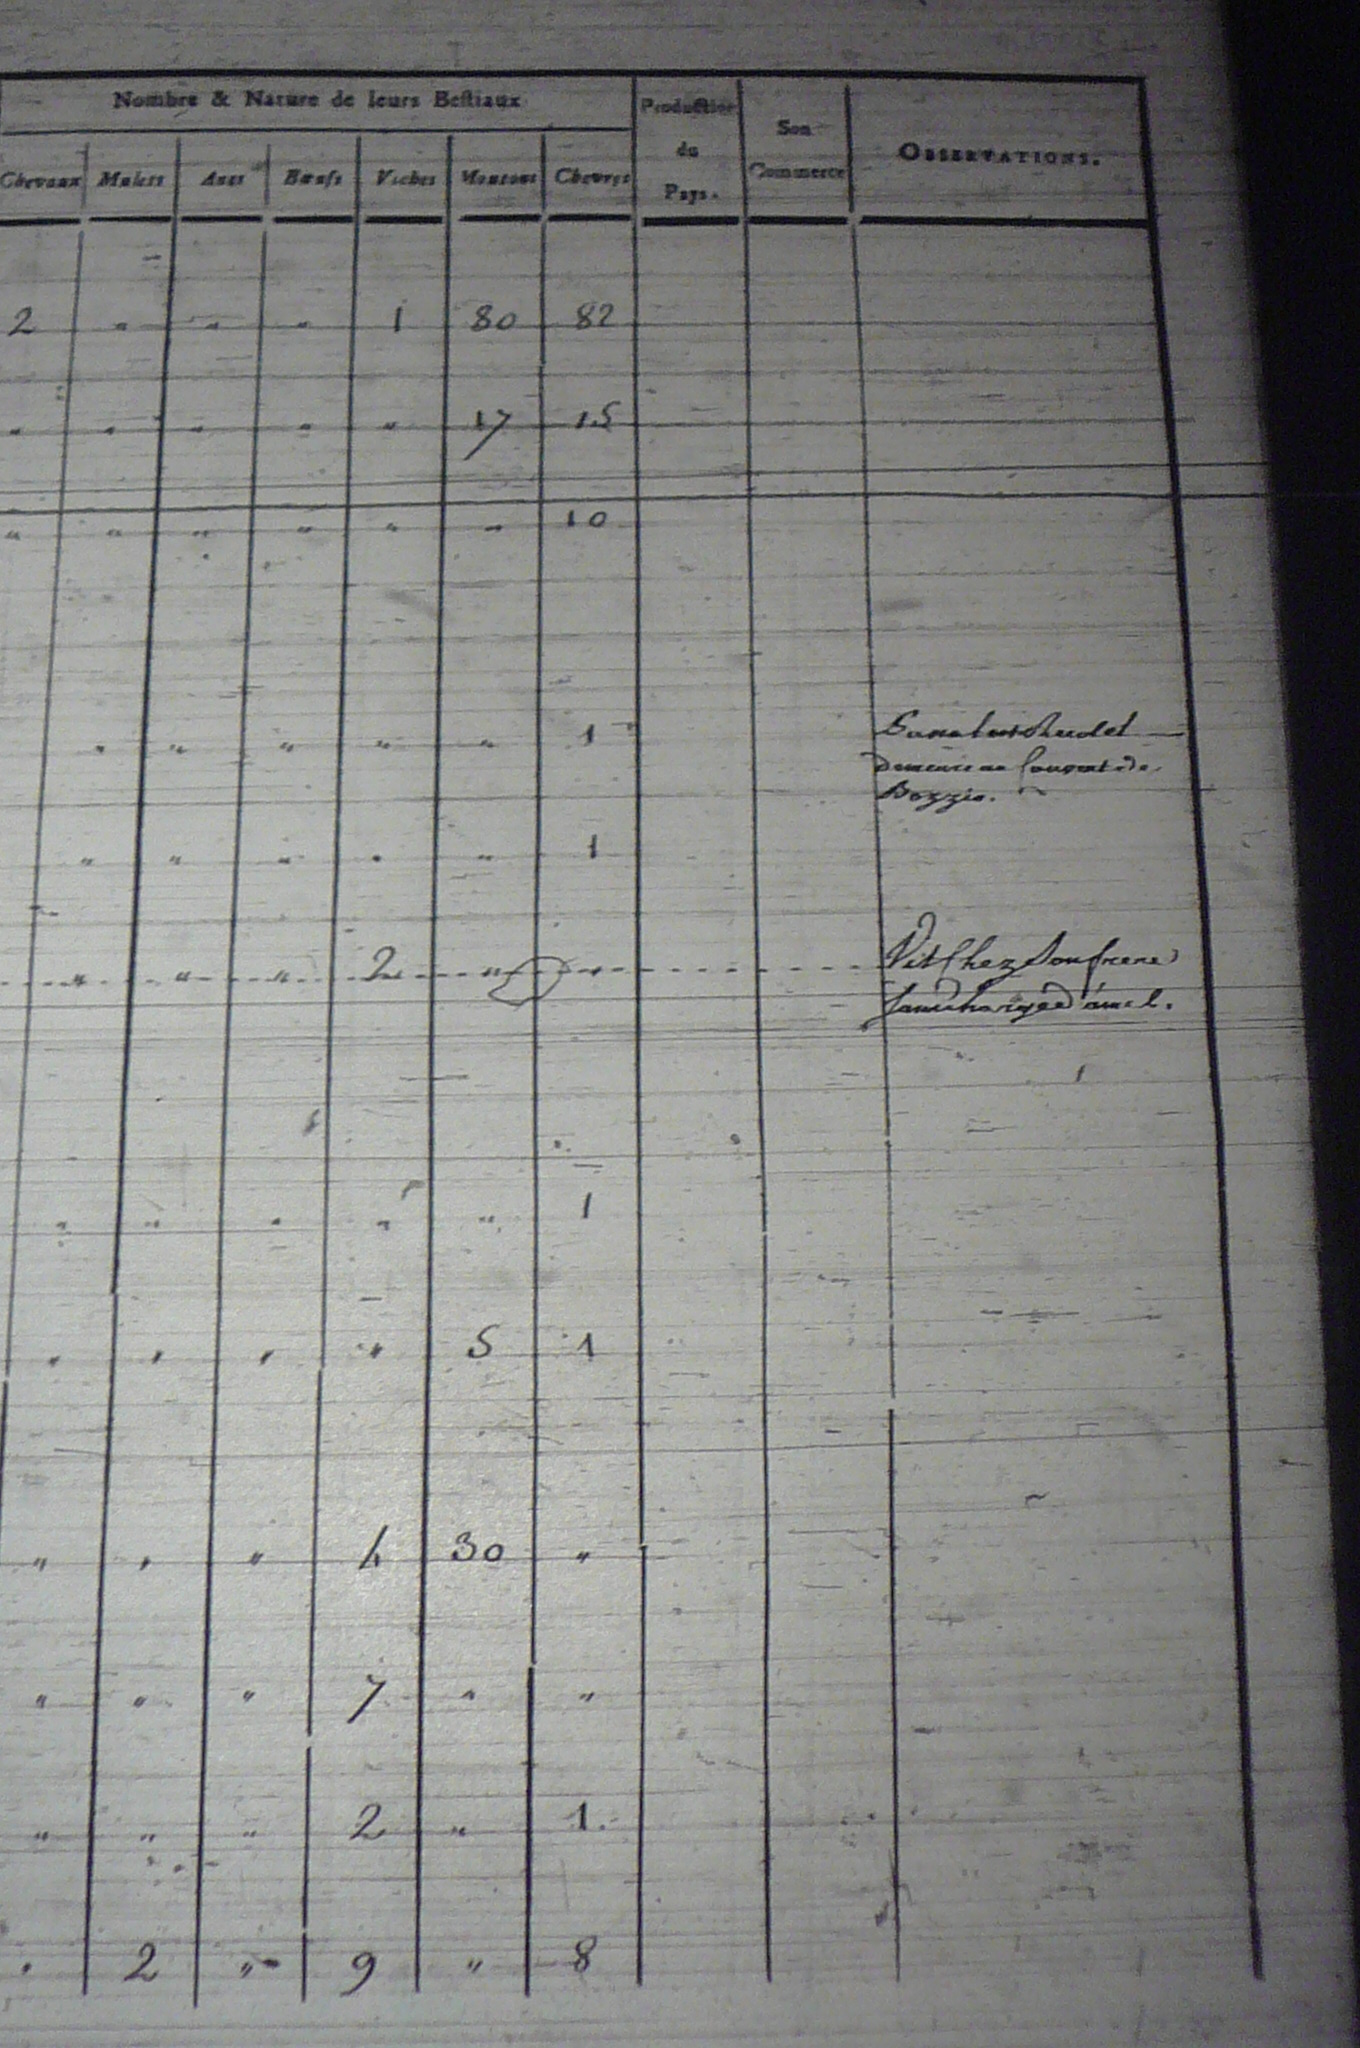 Nombre & Nature de leurs Bestiaux
Production
du
Pays.
Son
Commerce
OBSERVATIONS.
Chevaux Mulets Anes Bœufs Vaches Moutons Chevres
2 " " " 1 80 82
" " " " " 17 15
" " " " " " 10
" " " " " 1
demeure au Couvent de
Bozzio.
" " " " " 1
" " " 2 " "
Vit Chez Son frere
" " " " " 1
" " " " 5 1
" " " 4 30 "
" " " 7 " "
" " " 2 " 1.
" 2 " 9 " 8